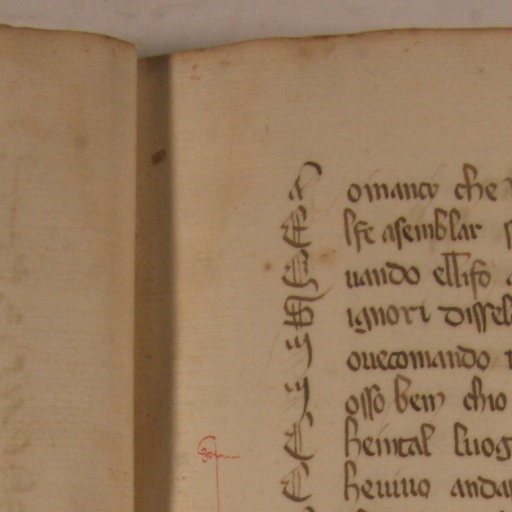 D omanco che
E lfe asemblar
Q uando ellifo
S ignori dissel
I ouecomando
I osso ben chio
C heintal luog
C heuiuo andar